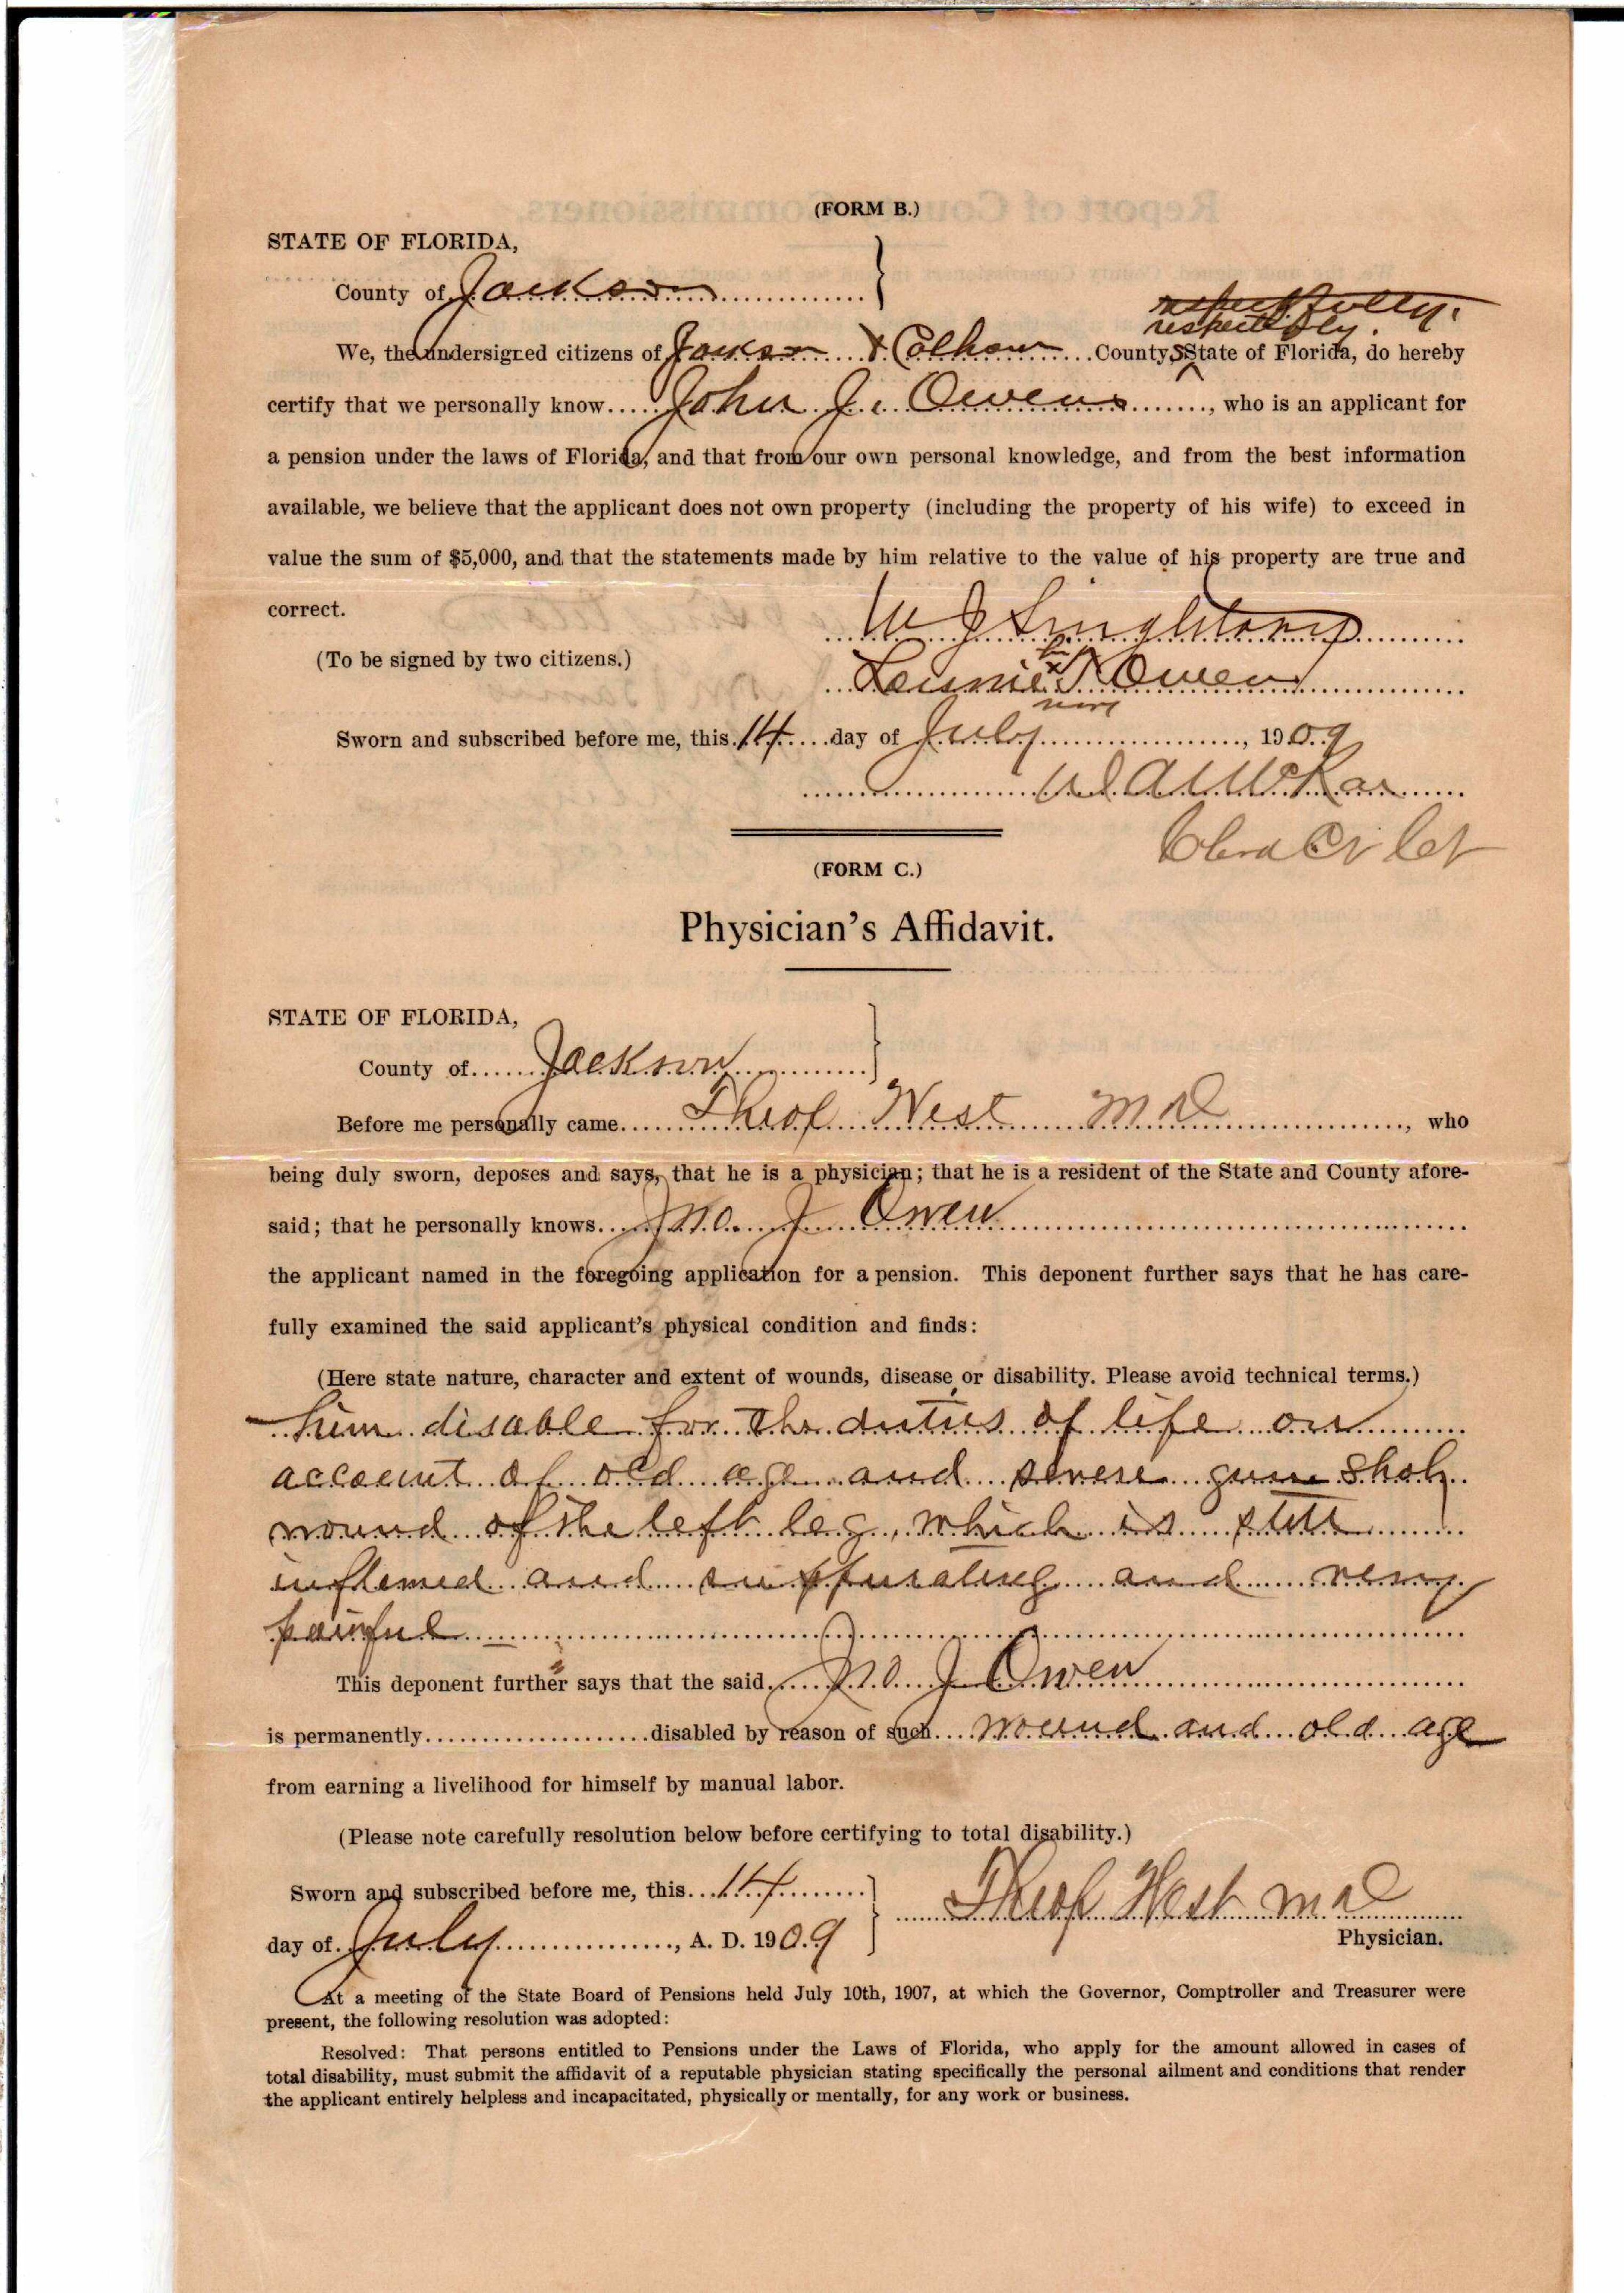 (FORM B.)
STATE OF FLORIDA,
County of Jackson
respectfully.
respectively.
We, the undersigned citizens of Jackson & Calhoun Countys State of Florida, do hereby
certify that we personally know John J. Owens, who is an applicant for
a pension under the laws of Florida, and that from our own personal knowledge, and from the best information
available, we believe that the applicant does not own property (including the property of his wife) to exceed in
value the sum of $5,000, and that the statements made by him relative to the value of his property are true and
correct.
W J Singletary
(To be signed by two citizens.)
his
Lennie X Owen
mark
Sworn and subscribed before me, this 14 day of July, 1909
Clerk
(FORM C.)
Physician's Affidavit.
STATE OF FLORIDA,
County of Jackson
Before me personally came Theof West MD, who
being duly sworn, deposes and says, that he is a physician; that he is a resident of the State and County afore-
said; that he personally knows Jno. J Owen
the applicant named in the foregoing application for a pension. This deponent further says that he has care-
fully examined the said applicant's physical condition and finds:
(Here state nature, character and extent of wounds, disease or disability. Please avoid technical terms.)
him disable for the duties of life on
account of old age and severe gun shot
wound of the left leg, which is still
inflamed and suppurating and very
painful
This deponent further says that the said Jno. J Owen
is permanently disabled by reason of such wound and old age
from earning a livelihood for himself by manual labor.
(Please note carefully resolution below before certifying to total disability.)
Sworn and subscribed before me, this 14
day of July, A. D. 1909
Theof West MD
Physician.
At a meeting of the State Board of Pensions held July 10th, 1907, at which the Governor, Comptroller and Treasurer were
present, the following resolution was adopted:
Resolved: That persons entitled to Pensions under the Laws of Florida, who apply for the amount allowed in cases of
total disability, must submit the affidavit of a reputable physician stating specifically the personal ailment and conditions that render
the applicant entirely helpless and incapacitated, physically or mentally, for any work or business.